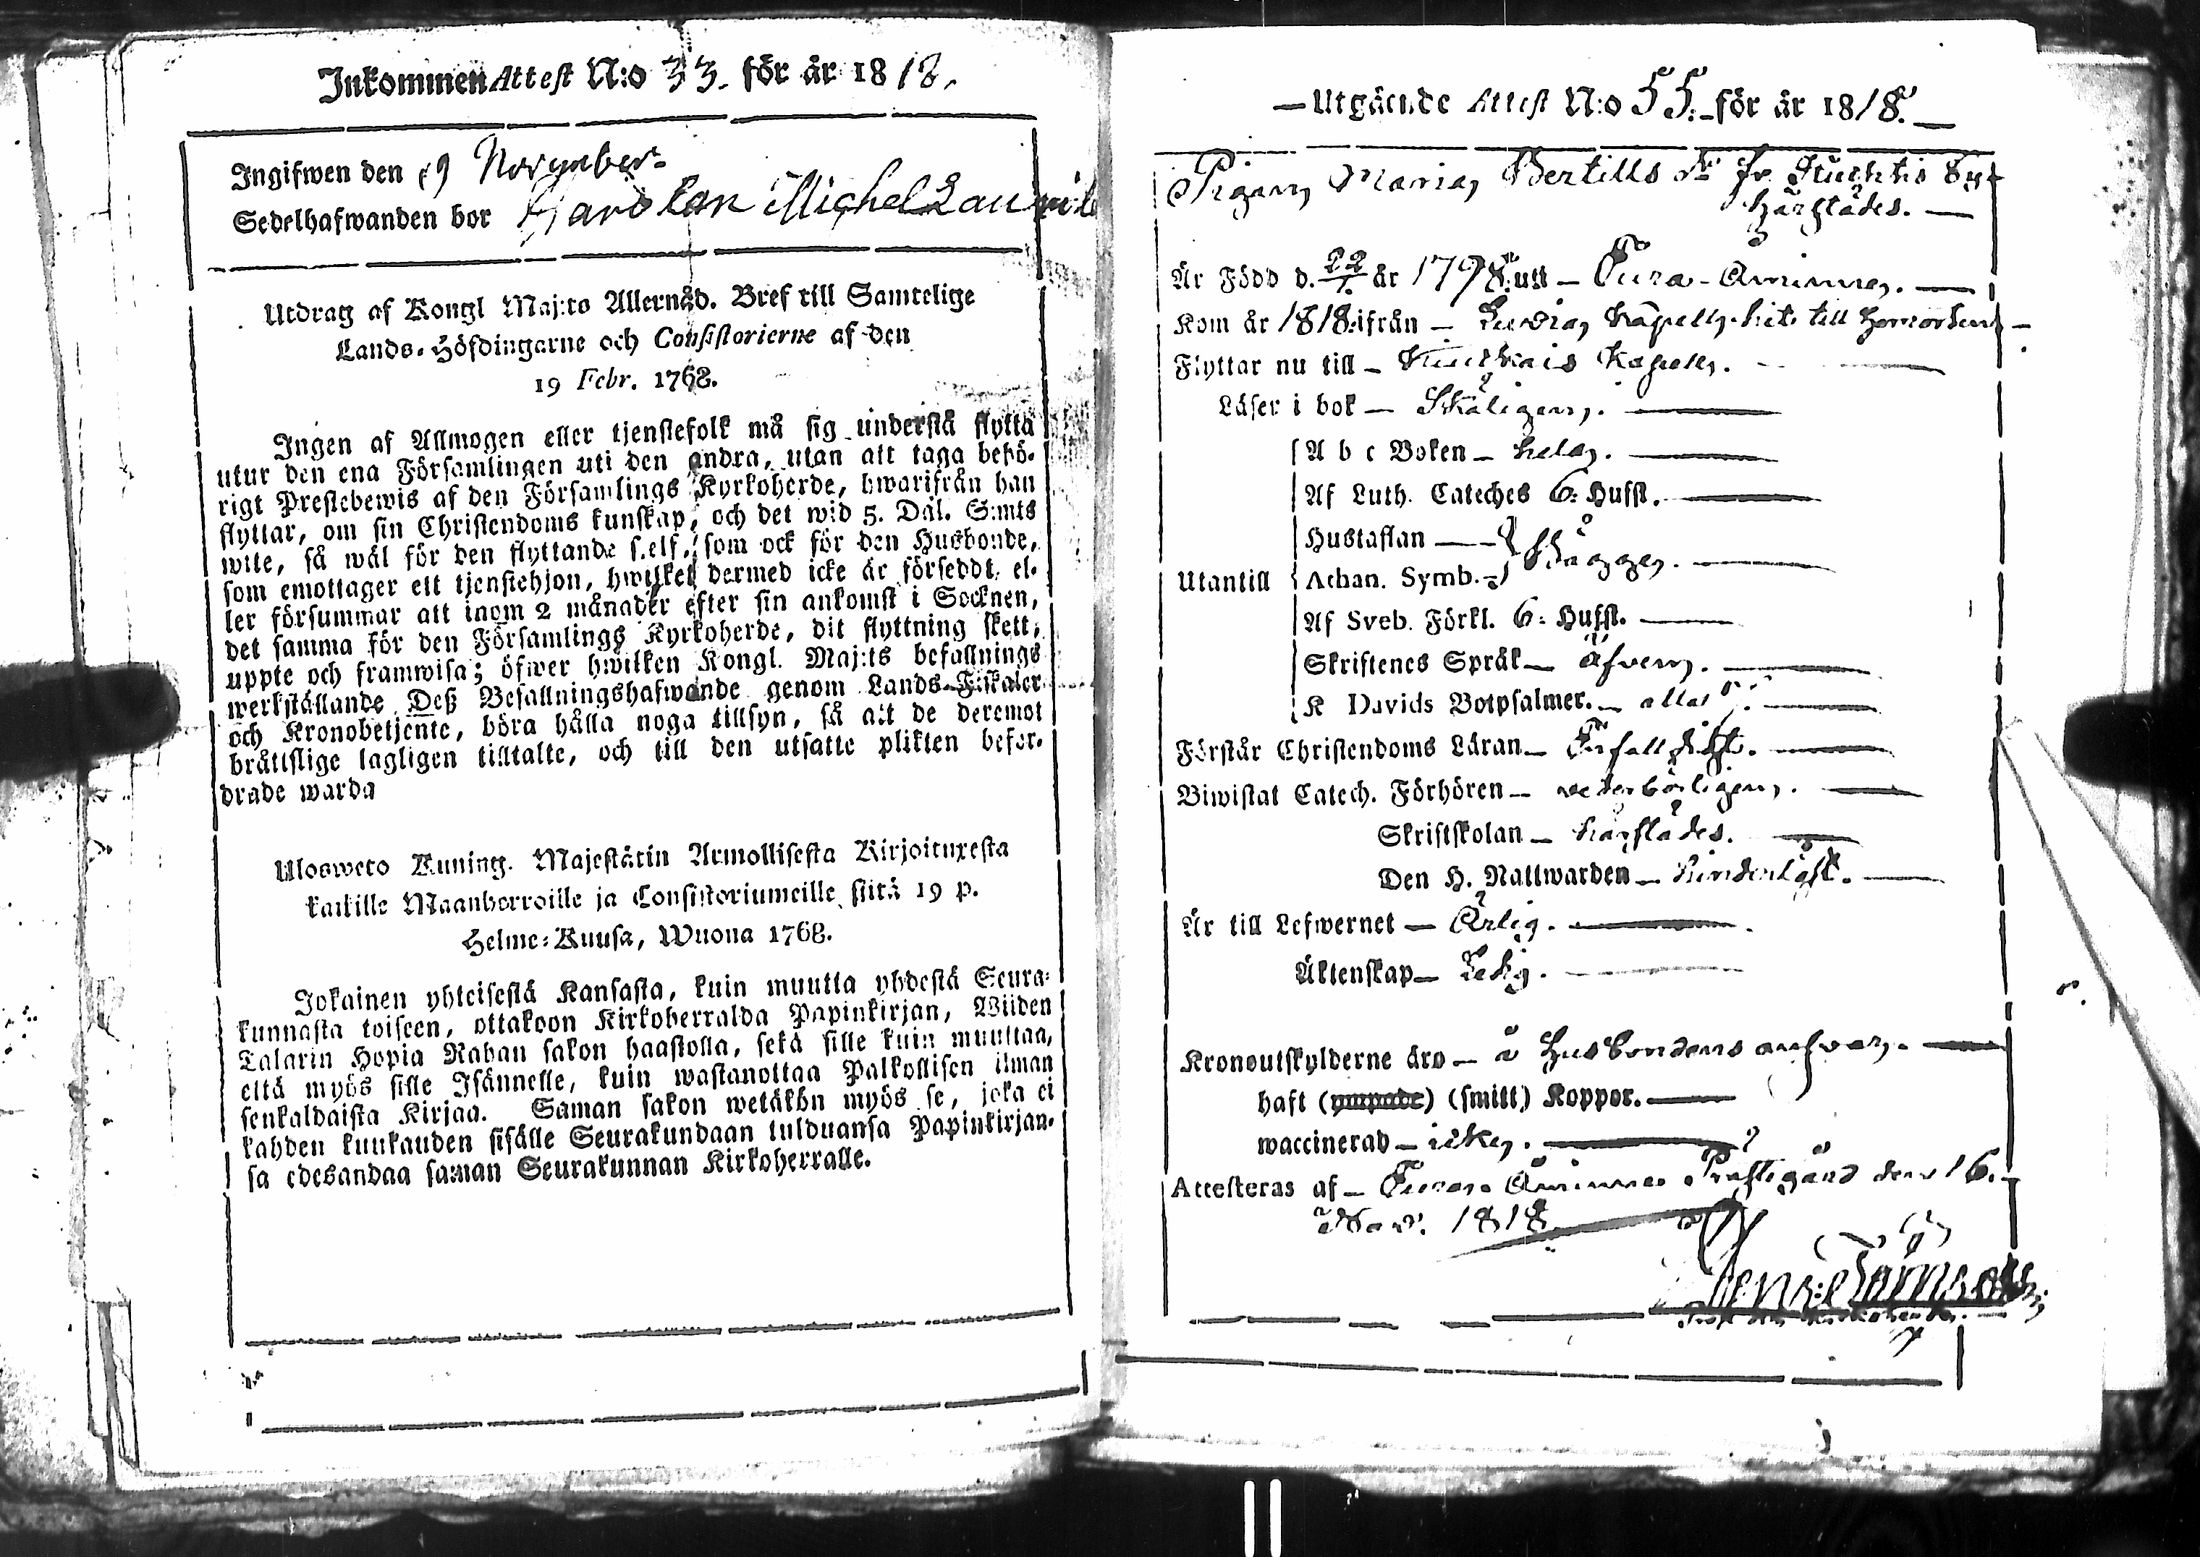 Inkommen Attest N:o 33. för år 1818.
Ingifwen den 19 November
Sedelhafwanden bor Michel
Utdrag af Kongl Maj:ts Allernåd. Bref till Samtelige
Lands-Höfdingarne och Consistorierne af den
19 Febr. 1768.
Ingen af Allmogen eller tjenstefolk må sig understå flytta
utur den ena Församlingen uti den andra, utan att taga behö-
rigt Prestebewis af den Församlings Kyrkoherde, hwarifrån han
flyttar, om sin Christendoms kunskap, och det wid 5. Dal. S:mts
wite, så wäl för den flyttande self, som ock för den Husbonde,
som emottager ett tjenstehjon, hwilket dermed icke är försedt, el-
ler försummar att inom 2 månader efter sin ankomst i Socknen,
det samma för den Församlings Kyrkoherde, dit flyttning skett,
uppte och framwisa; öfwer hwilken Kongl. Maj:ts befallnings
werkställande Deß Befallningshafwande genom Lands-Fiskaler
och Kronobetjente, böra hålla noga tillsyn, så att de deremot
bråttslige lagligen tilltalte, och till den utsatte plikten befor-
drade warda
Ulosweto Kuning. Majestätin Armollisesta Kirjoituxesta
kaikille Maanherroille ja Consistoriumeille, siitä 19 p.
Helme-Kuusa, Wuona 1768.
Jokainen yhteisestä Kansasta, kuin muutta yhdestä Seura-
kunnasta toiseen, ottakoon Kirkoherralda Papinkirjan, Wiiden
Talarin Hopia Rahan sakon haastolla, sekä sille kuin muuttaa,
että myös sille Isännelle, kuin wastanottaa Palkollisen ilman
senkaldaista Kirjaa. Saman sakon wetäkön myös se, joka ei
kahden kuukauden sisälle Seurakundaan tulduansa Papinkirjan-
sa edesandaa saman Seurakunnan Kirkoherralle.
Utgående Attest N:o 55. för år 1818.
Pigan Maria Bertills dr fr. by
härstädes.
Är Född d. 22/7. år 1798. uti Tura-Åminne.
Kom år 1818. ifrån Kapell hit till
Flyttar nu till Kapell.
Läser i bok Skäligen.
A b c Boken hela.
Af Luth. Cateches 6: Hufst.
Hustaflan
Utantill Athan. Symb. Bägge.
Af Sveb. Förkl. 6: Hufst.
Skriftenes Språk äfven.
K Davids Botpsalmer. alla 7.
Förstår Christendoms Läran Enfalldigt.
Biwistat Catech. Förhören vederbörligen.
Skriftskolan härstädes.
Den H. Nattwarden hinderlöst.
Är till Lefwernet Ärlig.
Äktenskap Ledig.
Kronoutskylderne äro å Husbondens answar.
haft (ympade) (smitt) Koppor.
waccinerad icke.
Attesteras af Åminne Prästegård den 16.
Nov. 1818